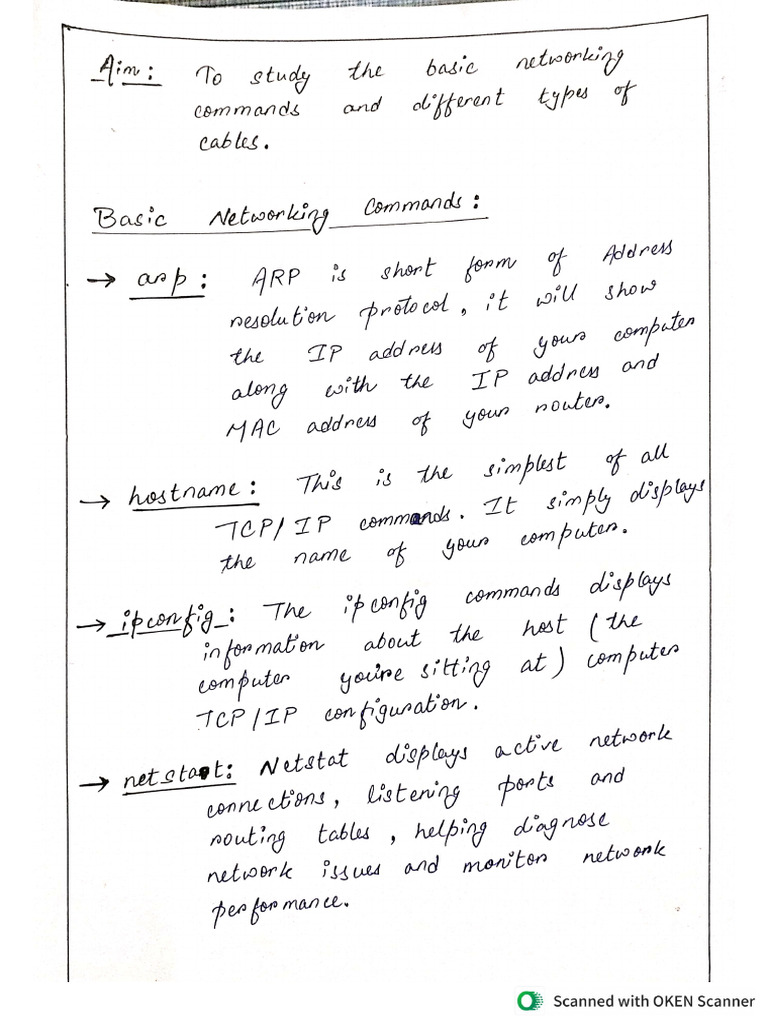 Aim: To study the basic networking
commands and different types of
cables.
Basic Networking Commands:
→ arp: ARP is short form of Address
resolution protocol, it will show
the IP address of your computer
along with the IP address and
MAC address of your router.
→ hostname: This is the simplest of all
TCP/IP commands. It simply displays
the name of your computer.
→ ipconfig: The ipconfig commands displays
information about the host (the
computer you're sitting at) computer
TCP/IP configuration.
→ netstat: Netstat displays active network
connections, listening ports and
routing tables, helping diagnose
network issues and monitor network
performance.
Scanned with OKEN Scanner